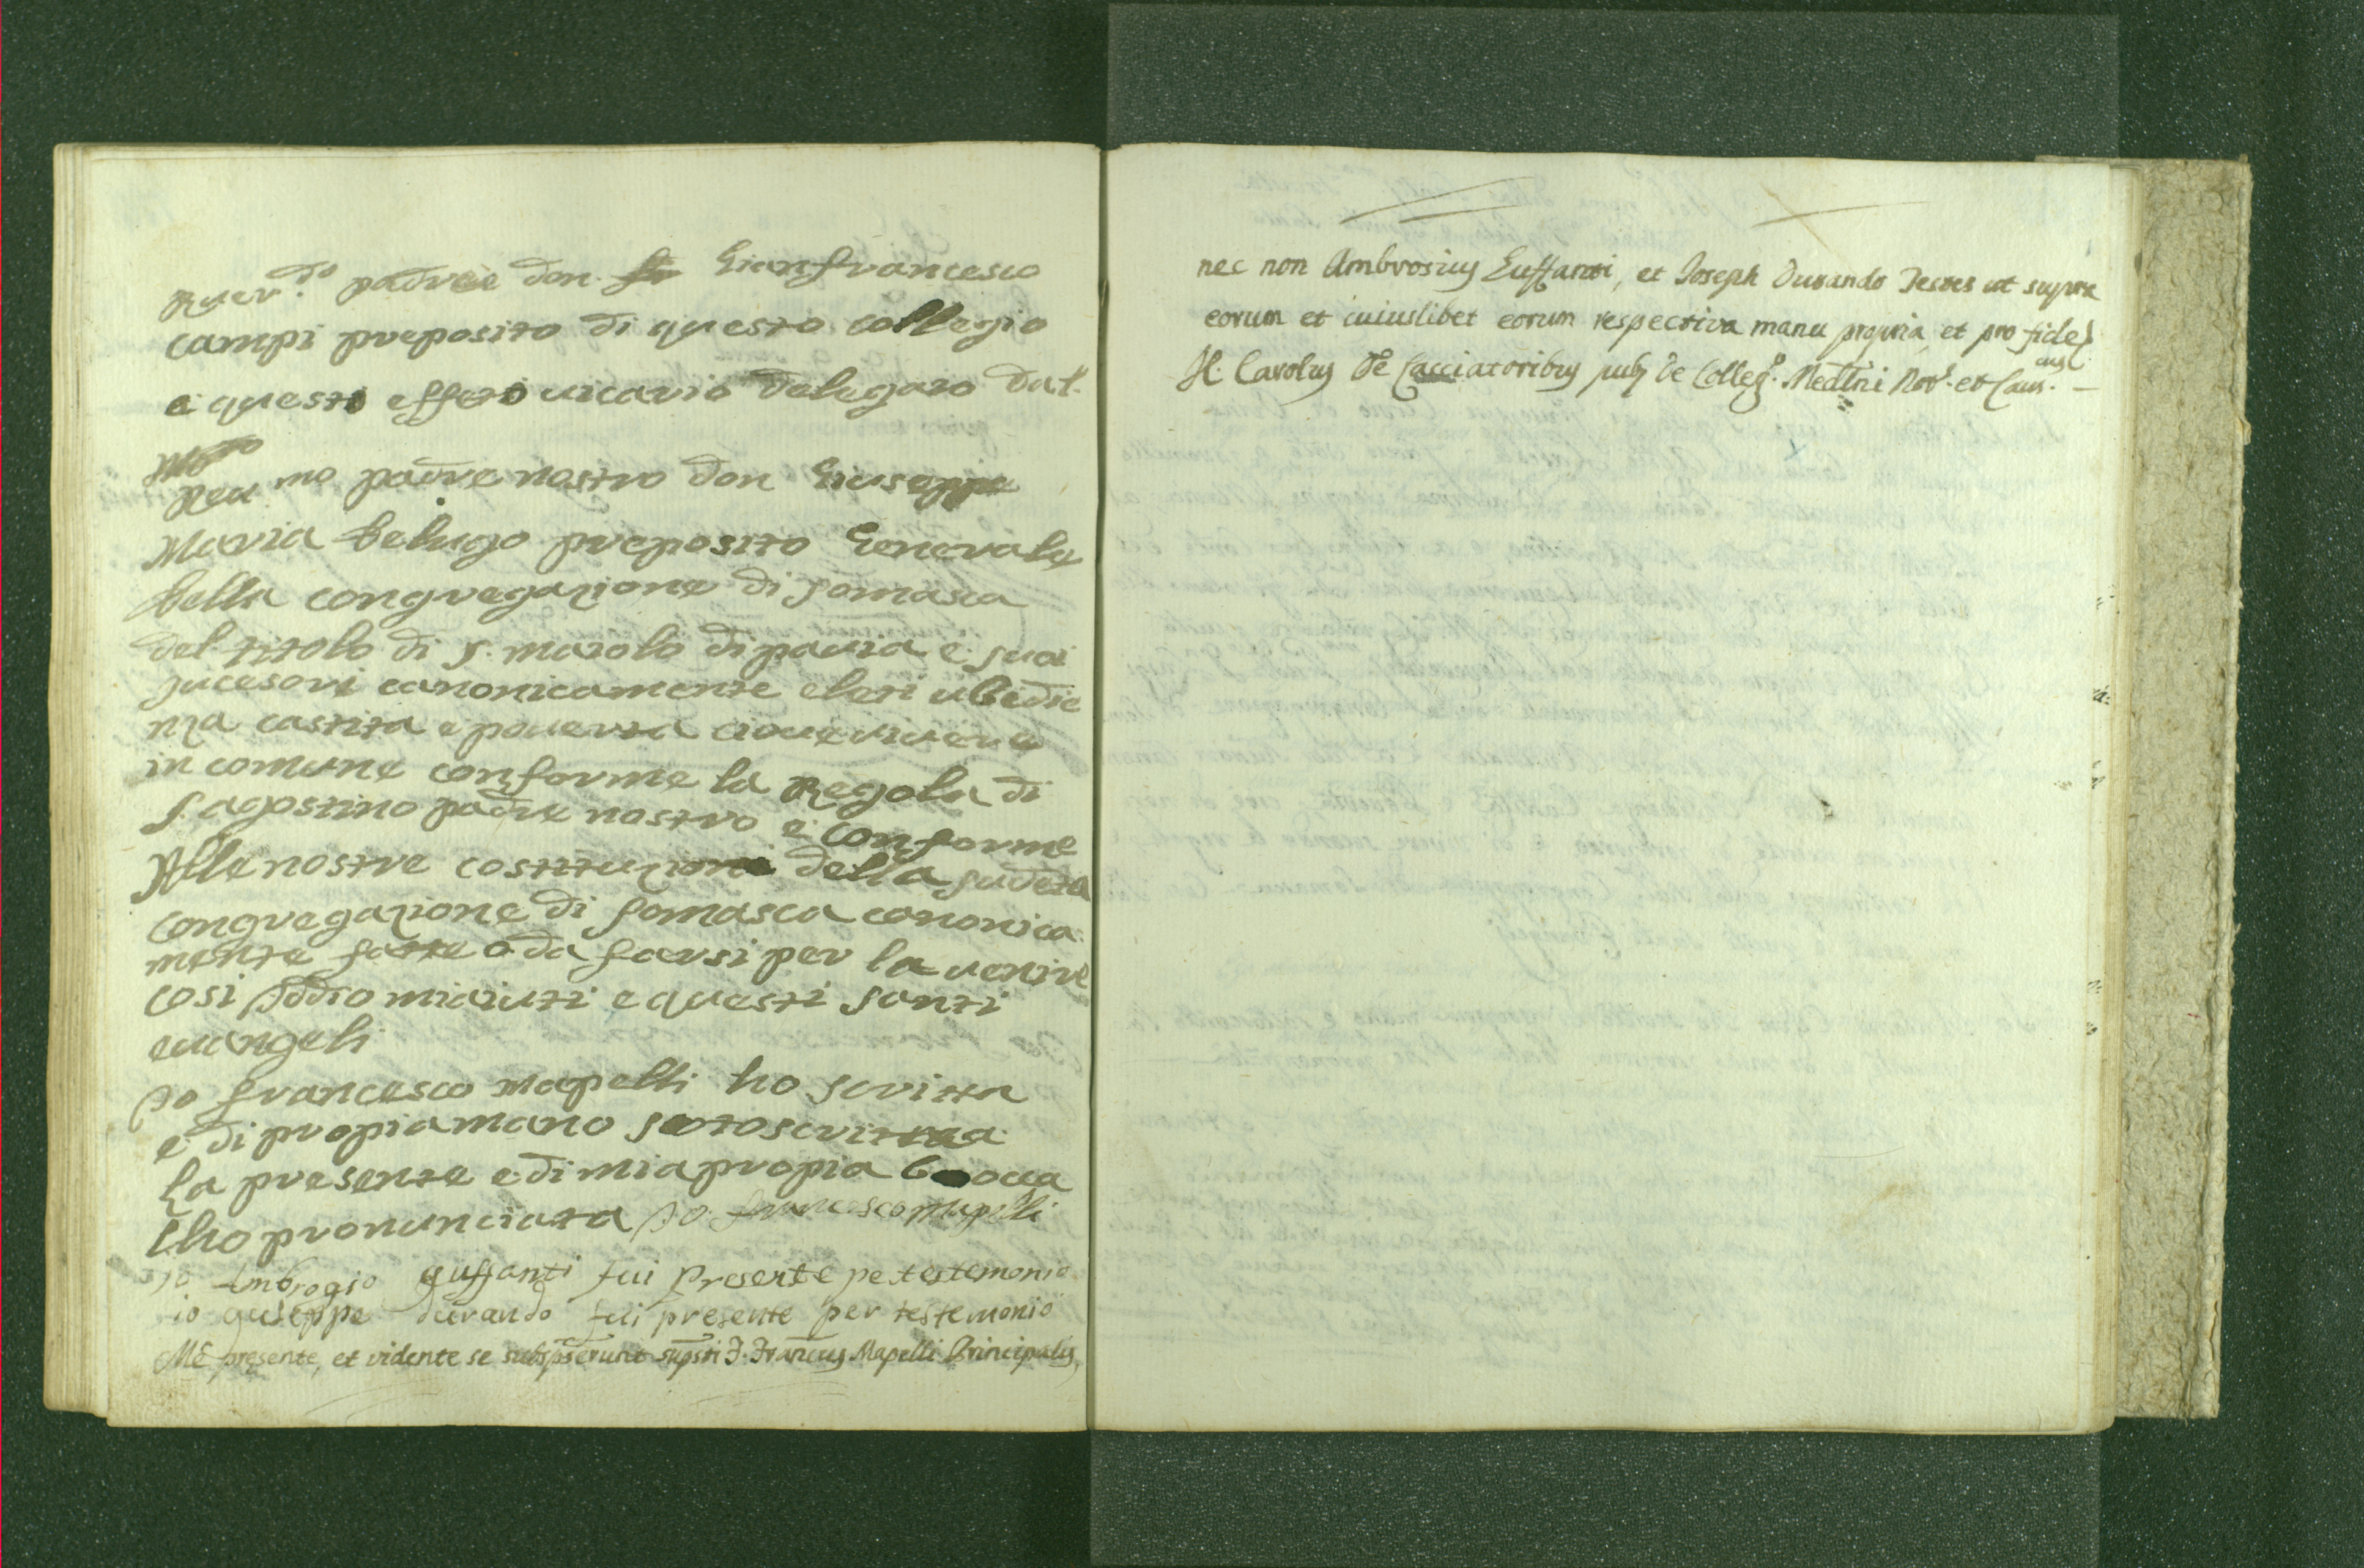 Rever.do padree don Gianfrancesco
campi preposito di questo collegio
e questo effeto vicario delegato dal.
Reu mo padre nostro don Giuseppe
Maria belugo preposito Generale
della congregazione di somasca
del titolo di s. maiolo di pavia e suoi
sucesori canonicamente eleti ubedie
nza castita e poverta cioue vivere
in comune conforme la Regola di
s. agostino padre nostro e conforme
Alle nostre costituzioni della sudeta
congregazione di somasca canonica
mente fatte o da farsi per la venire
cosi Iddio miaiuti e questi santi
euangeli
Io francesco mapelli ho scritta
e di propia mano sotoscritta
La presente e di mia propia bocca
lho pronunciata Io francesco mapelli
io Ambrogio guffanti fui presente pe testemonio
io guseppe durando fui presente per testemonio
Me presente, et vidente se subspserunt supsti J. Francus Mapelli Principalis,
nec non Ambrosius Guffanti, et Joseph Durando Testes ut supra
eorum et cuiuslibet eorum respectiva manu propria, et pro fide
H. Carolus de Cacciatoribus pub. de Colleg.o Medlni Not.s et Caus.